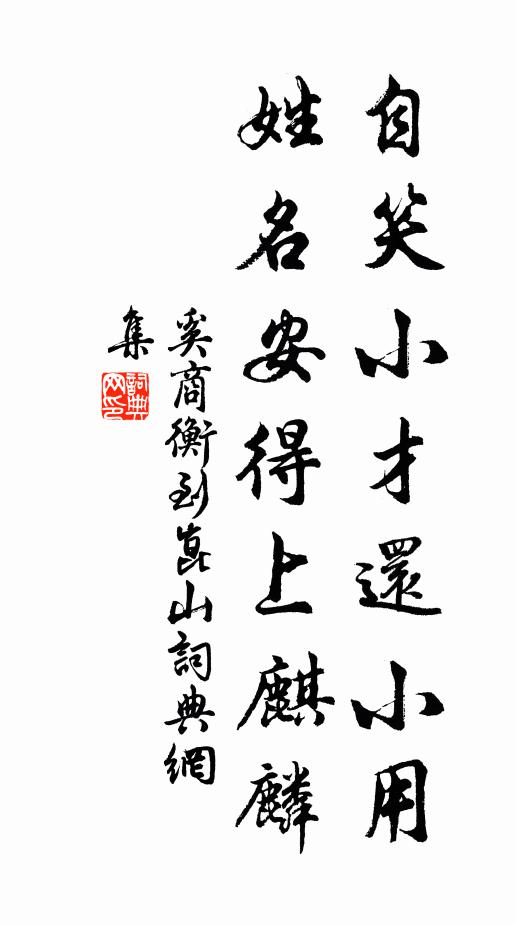 自笑小才還小用
姓名安得上麒麟
奚商衡到崑山詞典網
集
詞典
网印